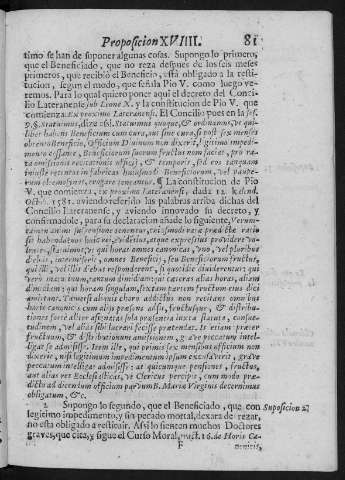 Proposicion XVIIII. 81
timo se han de suponer algunas cosas. Supongo lo primero,
que el Beneficiado, que no reza despues de los seis meses
primeros, que recibiò el Beneficio, està obligado a la resti-
tucion, segun el modo, que señala Pio V. como luego ve-
remos. Para lo qual quiero poner aqui el decreto del Concil
lio Lateranense sub Leone X. y la constitucion de Pio V. que
comienza Ex proximo Lateranensi. El Concilio pues en la ses.
9. §. Statuimus, dize assi. Statuimus quoque, & ordinamus, vt qui-
libet habens Beneficium cum cura, vel sine cura, si post sex menses
obtento Beneficio, Officium Divinum non dixerit, legitimo impedi-
mento cessante, Beneficiorum suorum fructus non faciat, pro ra-
ta omissionis recitationis officij, & temporis, sed eos tanquam
iniuste perceptos in fabricas huiusmodi Beneficiorum, vel paupe-
rum eleemosynas, erogare teneatur. ¶ La constitucion de Pio
V. que comienza, ex proximo lateranensi, dada 12. Kalend.
Octob. 1581. aviendo referido las palabras arriba dichas del
Concilio Lateranense, y aviendo innovado su decreto, y
confirmadole, para su declaracion añade lo siguiente,
statuimus, vt qui horas omnes canonicas, vno, vel pluribus
diebus, intermiserit, omnes Beneficij, seu Beneficiorum fructus,
qui illi, vel illis diebus responderent, si quotidie dividerentur: qui
verò matutinum tantum dimidiam: qui cæteras alias horas, aliam
dimidiam: qui horarum singulam, sextam partem fructuum eius diei
amittant. Tametsi aliquis choro addictus non recitans omnibus
horis canonicis cum alijs præsens adsit, fructusque, & distribu-
tiones fortè aliter assignatas sola præsentia iuxta statuta, consue-
tudinem, vel alias sibi lucrari fecisse prætendat. Is etiam præter
fructuum, & distributionum amissionem, grave peccatum intelli-
gat se admisisse. Item ille, qui primis sex mensibus officium non
dixerit, nisi legitimum impedimentum ipsum excusaverit, grave
peccatum intelligat admisisse: at quicunque pensiones, fructus,
aut alias res Ecclesiasticas, vt Clericus percipit, cum modo præ-
dicto ad dicendum officium parvum B. Mariæ Virginis decernimus
obligatum, &c.
2. Supongo lo segundo, que el Beneficiado, que con
legitimo impedimento, y sin pecado mortal, dexara de rezar,
no està obligado a restituir. Assi lo sienten muchos Doctores
graves, que cita, y sigue el Curso Moral, tract. 16. de Horis Ca-
F nonicis,
Suposicion 2.